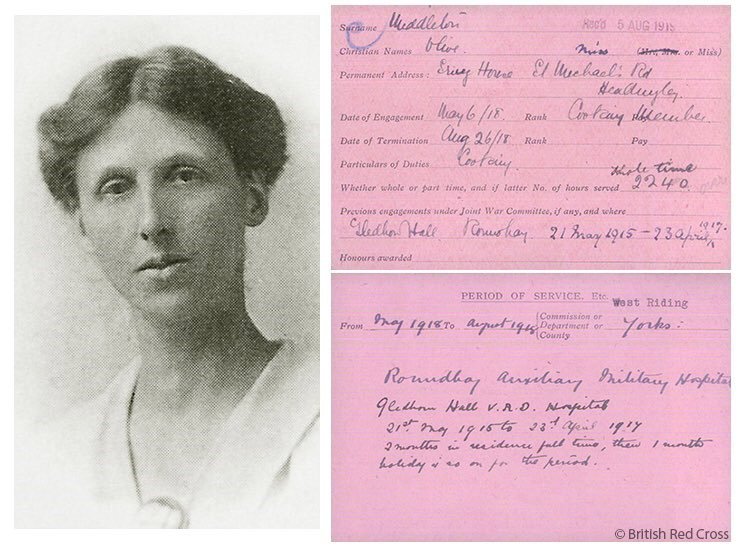 Surname Middleton Rec'd 5 AUG 1919
Christian Names Olive. Miss (Mrs. or Miss)
Permanent Address: House St Michael's Rd
Headingley
Date of Engagement May 6/18. Rank Cookery Member.
Date of Termination Aug 26/18 Rank Pay
Particulars of Duties Cookery. Whole time
Whether whole or part time, and if latter No. of hours served 2240
Previous engagements under Joint War Committee, if any, and where
Gledhow Hall Roundhay 21 May 1915 - 23 April 1917.
Honours awarded
PERIOD OF SERVICE, Etc. West Riding
From May 1918 To August 1918 {Commission or Department or County Yorks:
Roundhay Auxiliary Military Hospital
Gledhow Hall V.A.D. Hospital
21st May 1915 to 23rd April 1917
2 months in residence full time, then 1 months
holiday & so on for the period.
© British Red Cross